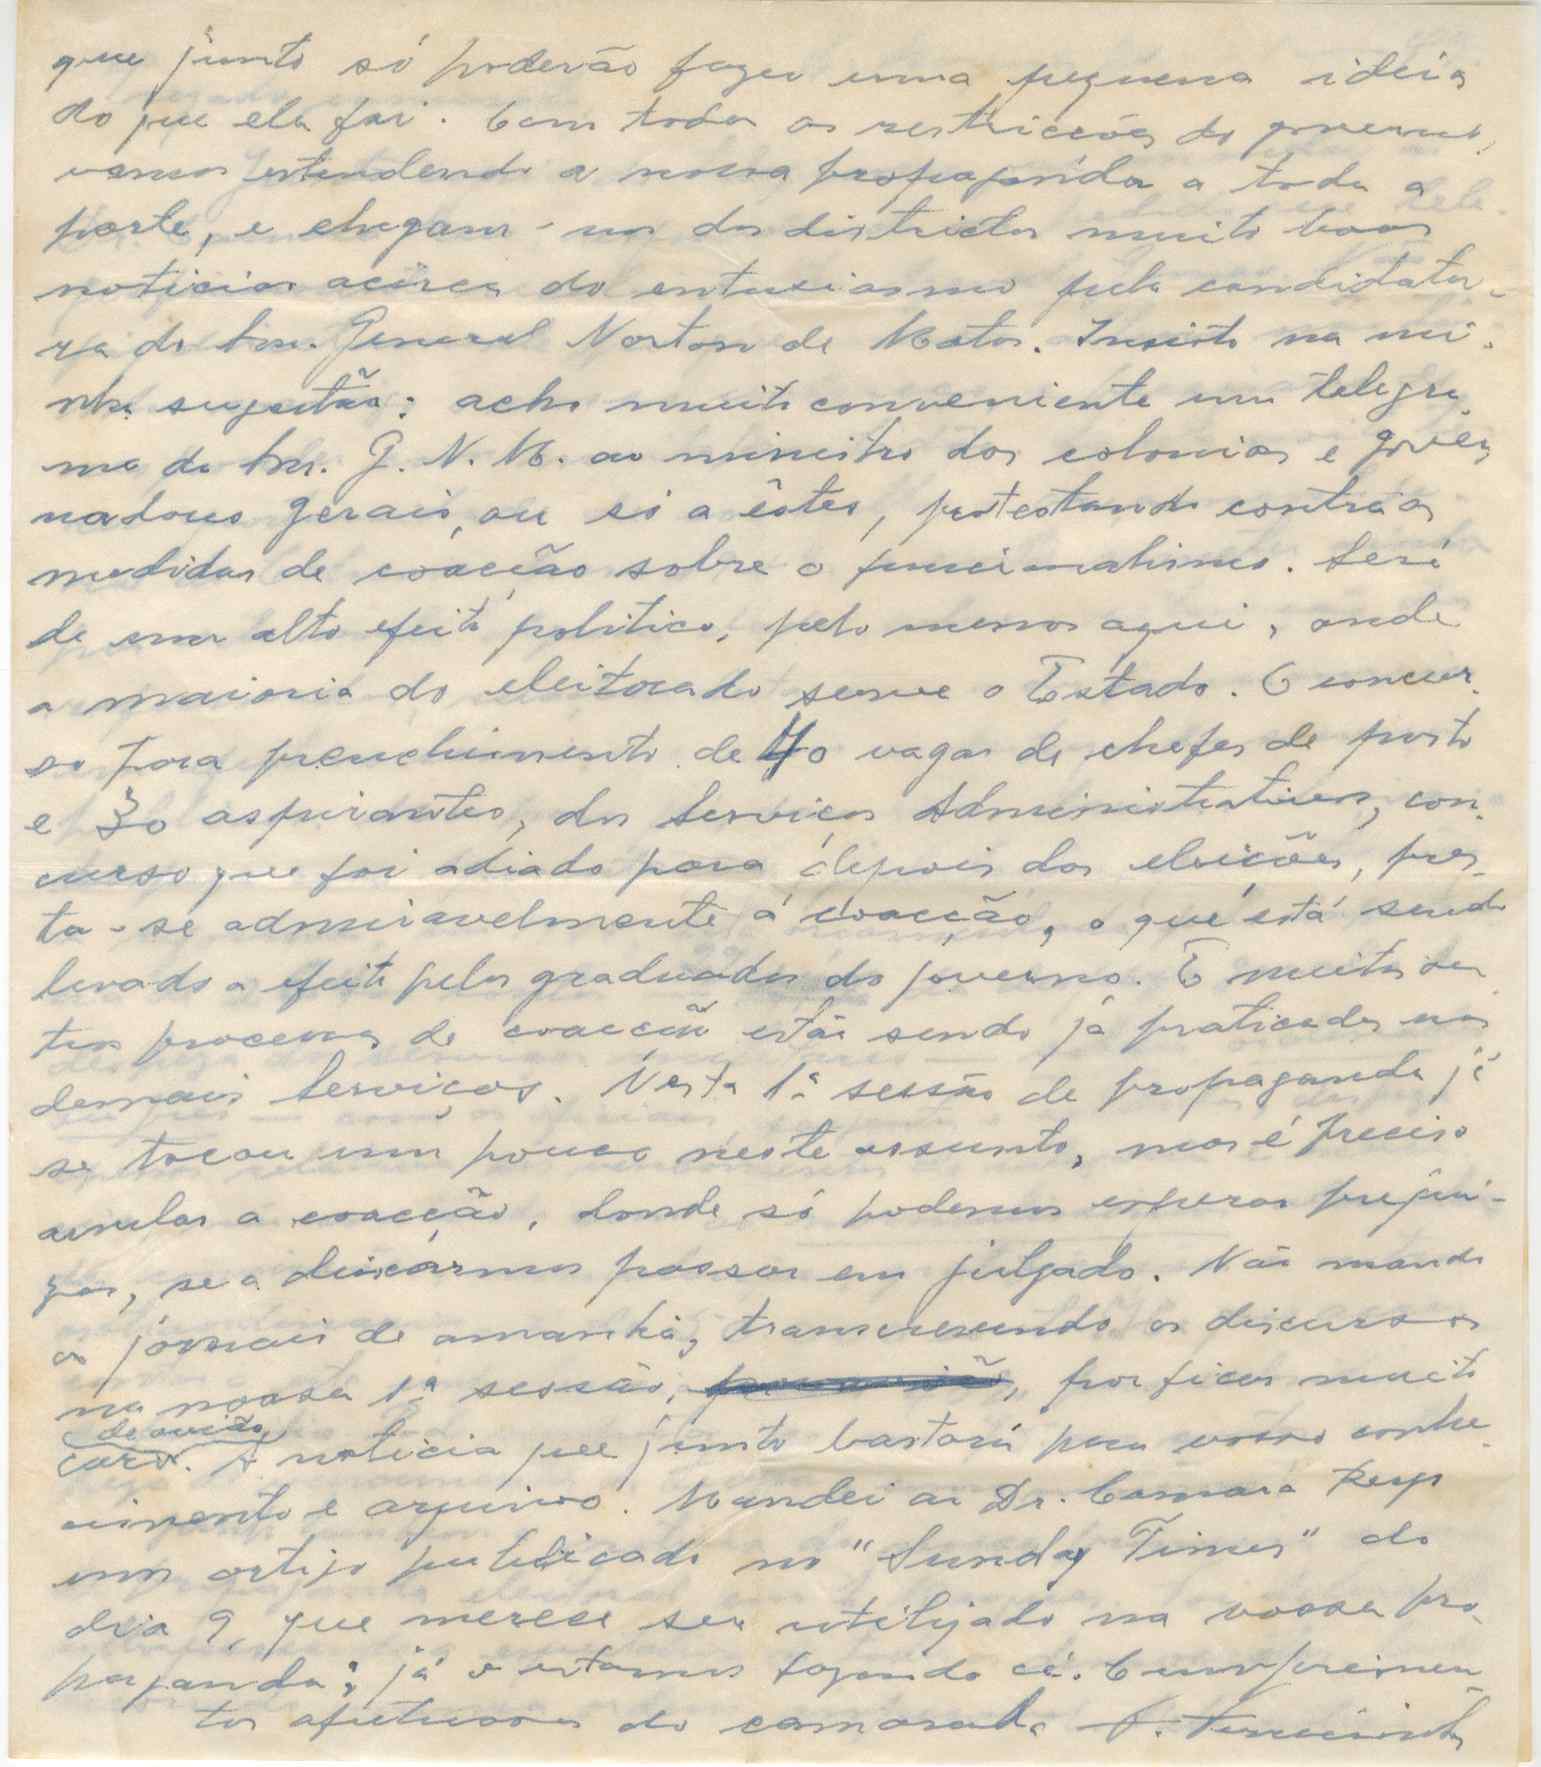 que junto só poderão fazer uma pequena ideia
do que ela foi. Com todas as restricções do governo,
vamos estendendo a nossa propaganda a toda a
parte, e chegam-nos dos districtos muito boas
noticias acêrca do entusiasmo pela candidatu-
ra do Snr. General Norton de Matos. Insisto na mi-
nha sugestão: acho muito conveniente um telegra-
ma do Snr. G. N. M. ao ministro das colonias e gover-
nadores gerais, ou só a êstes, protestando contra as
medidas de coacção sobre o funcionalismo. Será
de um alto efeito politico, pelo menos aqui, onde
a maioria do eleitorado serve o Estado. O concur-
so para preenchimento de 40 vagas de chefes de posto
e 30 aspirantes, dos Serviços Administrativos, con-
curso que foi adiado para depois das eleições, pres-
ta-se admiravelmente á coacção, o que está sendo
levado a efeito pelos graduados do governo. E muitos ou-
tros processos de coacção estão sendo já praticados nos
demais Serviços. Nesta 1ª sessão de propaganda já
se tocou um pouco neste assunto, mas é preciso
anular a coacção, donde só podemos esperar prejui-
zos, se a deixármos passar em julgado. Não mando
os jornais de amanhã, transcrevendo os discursos
na nossa 1ª sessão, por ficar muito
de avião
caro. A noticia que junto bastará para vosso conhe-
cimento e arquivo. Mandei ao Dr. Camara Reys
um artigo publicado no "Sunday Times" do
dia 9, que merece ser utilizado na vossa pro-
paganda; já o estamos fazendo cá. Cumprimen-
tos afectuosos do camarada